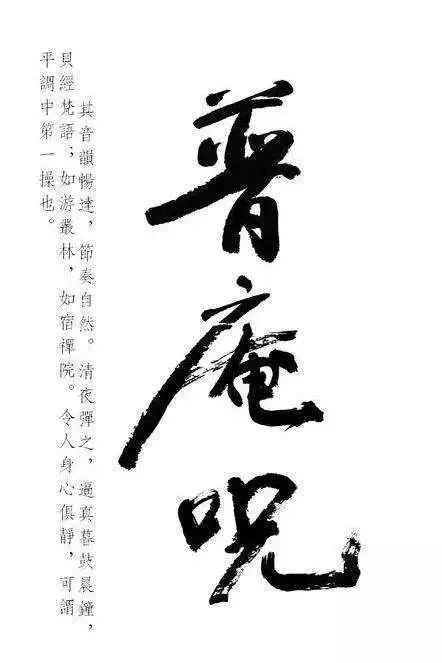 普庵咒
其音韻暢達，節奏自然。清夜彈之，逼真暮鼓晨鐘，
貝經梵語；如游叢林，如宿禪院。令人身心俱靜，可謂
平調中第一操也。